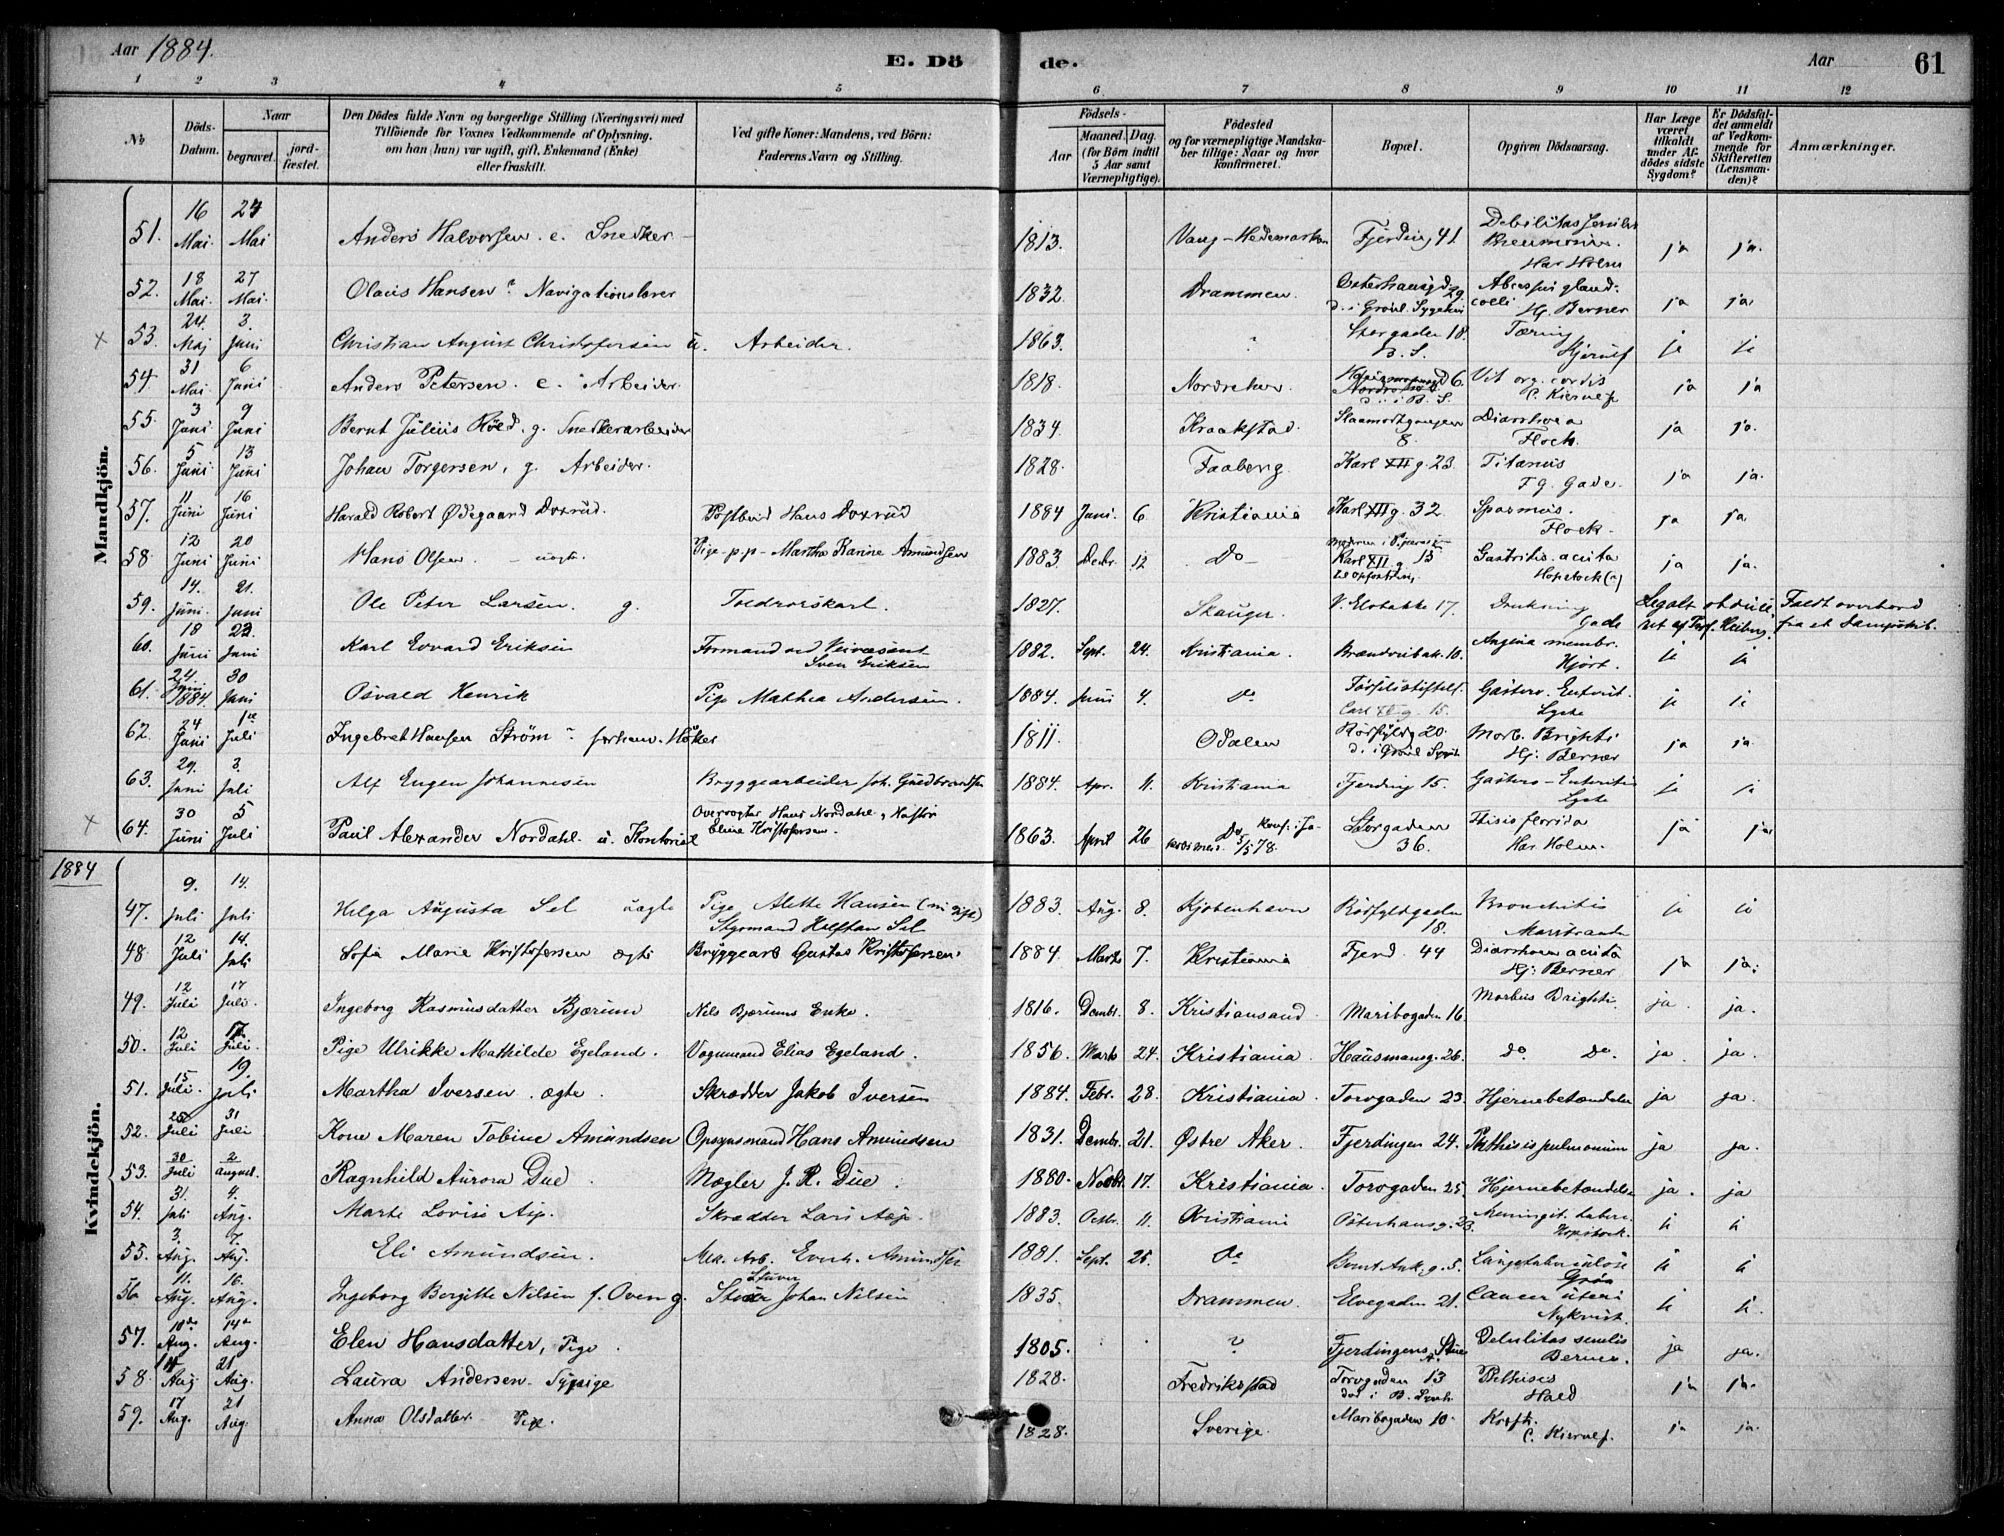 Aar 1884.
E. Dö
de.
Aar
61
1 2 3 4 5 6 7 8 9 10 11 12
No
Döds-Datum.
Naar
begravet.
jordfæstet.
Den Dödes fulde Navn og borgerlige Stilling (Næringsvei) med
Tilföiende for Voxnes Vedkommende af Oplysning,
om han (hun) var ugift, gift, Enkemand (Enke)
eller fraskilt.
Ved gifte Koner: Mandens, ved Börn:
Faderens Navn og Stilling.
Födsels-
Aar
Maaned. Dag.
(for Börn indtil
5 Aar samt
Værnepligtige).
Födested
og for værnepligtige Mandska-
ber tillige: Naar og hvor
konfirmeret.
Bopæl.
Opgiven Dödsaarsag.
Har Læge
været
tilkaldt
under Af-
dödes sidste
Sygdom?
Er Dödsfal-
det anmeldt
af Vedkom-
mende for
Skifteretten
(Lensman-
den)?
Anmærkninger.
Mandkjön.
51. 16 Mai. 24 Mai Anders Halvorsen. e. Snedker 1813. Vang-Hedemarken Fjerding 41. Debilitas senilis Pneumonia. Har Holm ja ja.
52. 18 Mai. 27 Mai. Olaus Hansen Navigationslærer 1832. Drammen. Osterhausgd. 29. d. i Grønl. Sygehus Abcessus gland. colli Hj. Berner ja ja.
x 53. 24. Maj 3. Juni Christian August Christofersen u. Arbeider. 1863. Storgaden 18. B. S. Tæring Hjerulf ja ja
54 31 Mai 6 Juni Anders Petersen. e. Arbeider. 1818. 6. d. i B. S. Vit. org. cordis C. Kierulf ja ja
55. 3 Juni 9 Juni Bernt Julius Röed. g. Snedkerarbeider 1834. Kraakstad. 8. Diarrhoea Flock. ja ja.
56. 5 Juni 13 Juni Johan Torgersen, g. Arbeider. 1828. Faaberg. Karl XII g. 23. Titanus F. G. Gade. ja ja.
57. 11 Juni 16 Juni Harald Robert Ødegaard Doxrud. Postbud Hans Doxrud 1884 Juni. 6. Kristiania Karl XII g. 32. Spasmus. Flock. ja ja.
58 12 Juni 20 Juni Hans Olsen uægte. Pige p.p. Marthe Karine Amundsen 1883. Decbr. 12 Do Karl XII g. 13 til Opfostring Gastritis acuta Hopstock ja ja.
59. 14. Juni. 21. Juni Ole Peter Larsen. g. Toldrorskarl. 1827. Skauger. V. Elvbakke 17. Drukning Gade Legalt obducieret af Prof. Heiberg. Faldt overbord fra et Dampskib.
60. 18 Juni 23. Juni Karl Edvard Eriksen Formand ved Veivæsent Sven Eriksen 1882. Sept. 24. Kristiania. 10. Angina membr. Hjort. ja ja
61. 24. Juni 1884. 30 Juni Osvald Henrik Pige Mathea Andersen. 1884. Juni 4. do Fødselsstiftelsen. Carl XII g. 15. Gastero-Enterit. Lyche ja ja
62. 24 Juni 1ste Juli Ingebret Hansen Ström forhen. Høker 1811. Odalen Rörfyldg 20. d. i Grönl. Sygeh. Morb. Brighti Hj. Berner ja ja.
63. 29. Juni 3. Juli Alf Eugen Johannesen Bryggearbeider Joh. Gudbrandsen 1884. Apr. 11. Kristiania Fjerding 15. Gastero-Enteritis Lyche ja ja
x 64. 30 Juni 5 Juli Paul Alexander Nordahl. u. Kontorist Overvogter Hans Nordahl og Hustru Eline Kristofersen. 1863. April 26 Do Konf. i Jakobs 5/5 78. Storgaden 36. Ftisis florida Har. Holm. ja ja
1884
Kvindekjön.
47. 9. Juli 14. Juli Helga Augusta Sel uægte Pige Alette Hansen (nu gift) Styrmand Halftan Sel 1883. Aug. 8. Kjøbenhavn Rörfyldgaden 18. Bronchitis ja ja
48 12 Juli 14. Juli Sofie Marie Kristofersen ægte Bryggearb Gustav Kristofersen. 1884. Marts 7. Kristiania Fjerd. 44 Diarrhoea acuta Hj. Berner ja ja.
49. 12 Juli 17 Juli. Ingeborg Rasmusdatter Bjærum Nils Bjærums Enke. 1816. Decmbr. 8. Kristiansand. Maribogaden 16. Morbus Brighti ja. ja.
50. 12 Juli 17. Juli. Pige Ulrikke Mathilde Egeland. Vognmand Elias Egeland. 1856. Marts 24. Kristiania. Hausmansg. 26. do Do. ja. ja.
51. 15 Juli. 19. Juli Martha Iversen. ægte. Skrædder Jakob Iversen 1884. Febr. 28. Kristiania. Torvgaden 23. Hjernebetændelse ja ja.
52. 25 Juli 31 Juli Kone Maren Tobine Amundsen Opsynsmand Hans Amundsen 1831. Decmbr. 21. Østre Aker. Fjerdingen 24. Phthisis pulmonum ja ja.
53. 30 Juli 2 August. Ragnhild Aurora Due. Mægler J. R. Due. 1880. Novbr. 17. Kristiania. Torvgaden 25. Hjernebetændelse ja. ja
54. 31. Juli 4. Aug. Marte Lovise Asp. Skrædder Lars Asp. 1883. Octbr. 11. Kristiania Osterhausg. 23. Meningit. Hopstock. ja ja
55. 3. Aug. 7. Aug. Eli Amundsen. Mek. Arb. Everh. Amundsen 1881. Sept. 25. do Bernt Ank. g. 5. Lungetuberculose Grøn ja ja
56 11. Aug. 16. Aug. Ingeborg Bergitte Nilsen f. Oven g. Stuver Johan Nilsen 1835. Drammen. Elvegaden 21. Cancer uteri Nykvist. ja ja.
57. 10de Aug. 14de Aug. Elen Hansdatter, Pige. 1805. ? Fjerdingens Debilitas senilis Berner. ja ja.
58. 14 Aug 21 Aug. Laura Andersen. Sypige 1828. Fredrikstad Torvgaden 13 død i B. Sygeh. Phthisis Hald ja ja.
59. 17 Aug. 21 Aug. Anna Olsdatter Pige 1828. Sverige. Maribogaden 10. Kræft. C. Kierulf. ja ja.